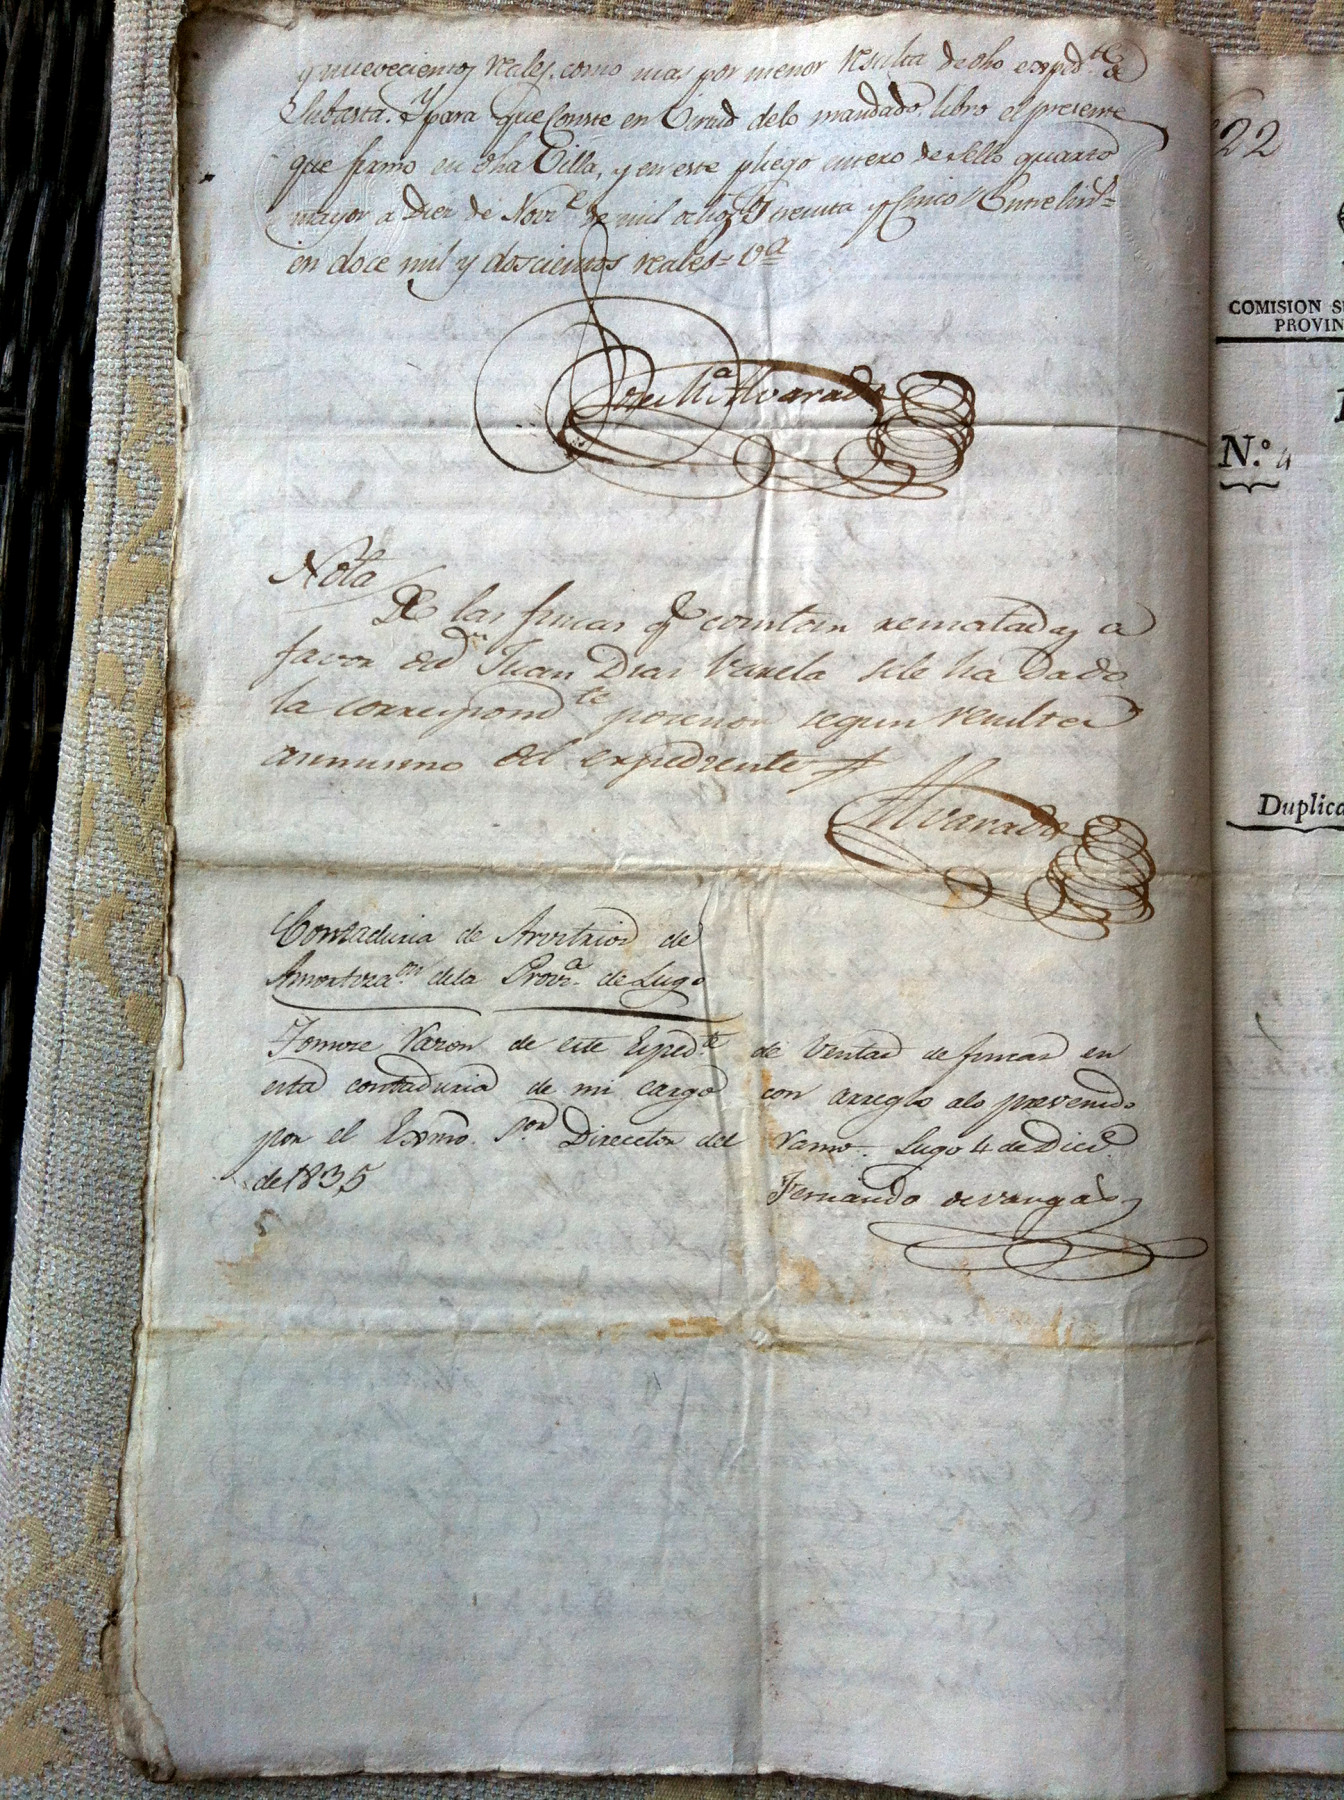 y nuevecientos reales, como mas por menor resulta de dho exped.te de
Subasta. Y para que Conste en Virtud delo mandado, libro el presente
que firmo en dha Villa, y en este pliego entero de sello quarto
mayor a Diez de Nov.e de mil ochoz.tos treinta y Cinco // Entrelin.s =
en doce mil y doscientos reales = V.a
Jose M.a Alvarado
Nota
De las fincas q.e constan rematadas a
favor de d.n Juan Dias Varela sele ha dado
la correspond.te posesion segun resulta
asimismo del expediente
Alvarado
Contaduria de Arvitrios de
Amortiza.on dela Prov.a de Lugo
Tomose Razon de este Exped.te de Ventas de fincas en
esta contaduria de mi cargo con arreglo alo prevenido
por el Exmo. S.or Director del Ramo. Lugo 4 de Dic.e
de 1835
Fernando de Vargas
22
COMISION
PROVIN
N.o 4
Duplica